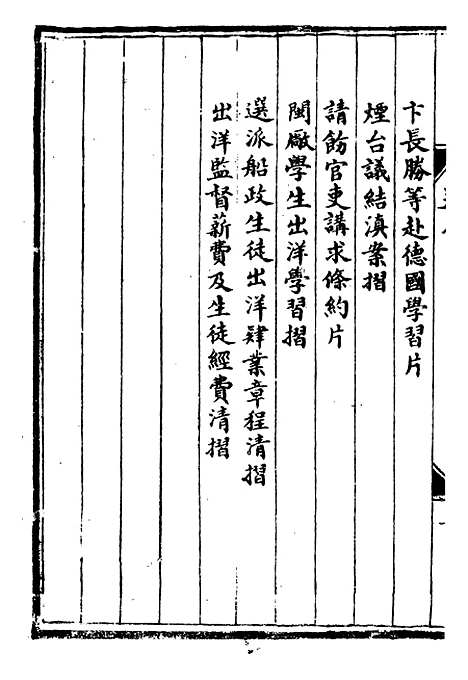 卞長勝等赴德國學習片
煙台議結滇案摺
請飭官吏講求條約片
閩廠學生出洋學習摺
選派船政生徒出洋肄業章程清摺
出洋監督薪費及生徒經費清摺